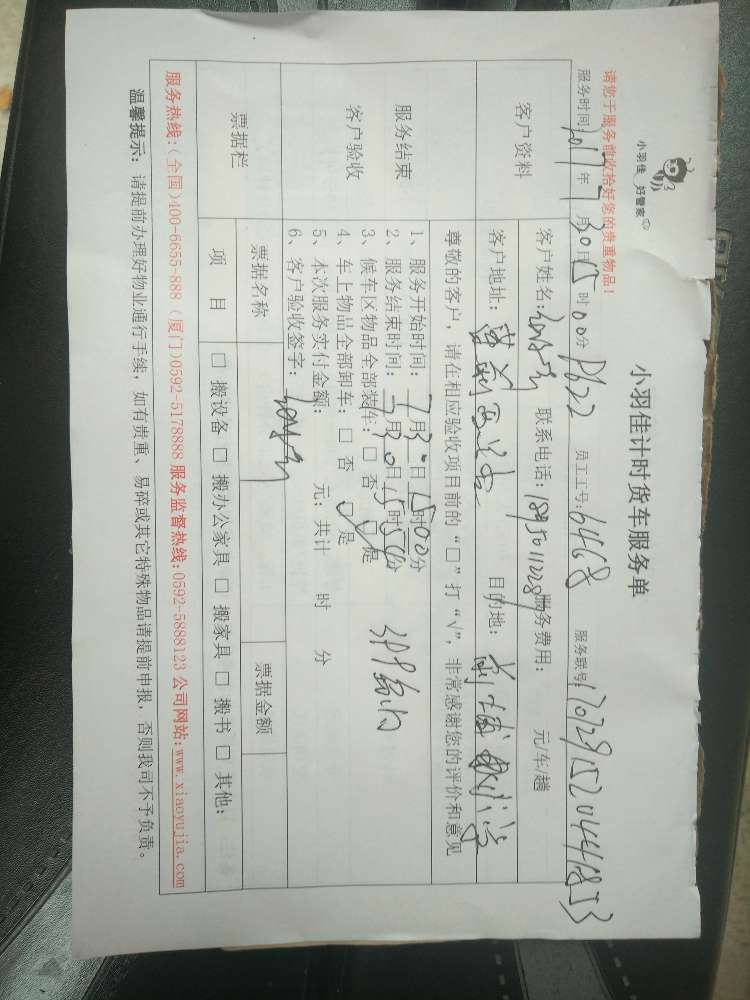 小羽佳 好管家
小羽佳计时货车服务单
请您于服务前收拾好您的贵重物品！
服务时间：2017年7月30日15时00分 P622 员工工号：6468 服务联号：
客户资料
客户姓名： 联系电话： 服务费用： 元/车/趟
客户地址： 目的地：
尊敬的客户，请在相应验收项目前的“□”打“√”，非常感谢您的评价和意见
服务结束
客户验收
1、服务开始时间：7月30日15时00分
2、服务结束时间：7月30日15时50分
3、候车区物品全部装车：□ 否 □ 是
4、车上物品全部卸车：□ 否 □ 是
5、本次服务实付金额： 元；共计 时 分
6、客户验收签字：
票据栏
票据名称 票据金额
项 目 □ 搬设备 □ 搬办公家具 □ 搬家具 □ 搬书 □ 其他：
服务热线：（全国）400-6655-888（厦门）0592-5178888 服务监督热线：0592-5888123 公司网站：www.xiaoyujia.com
温馨提示：请提前办理好物业通行手续，如有贵重、易碎或其它特殊物品请提前申报，否则我司不予负责。